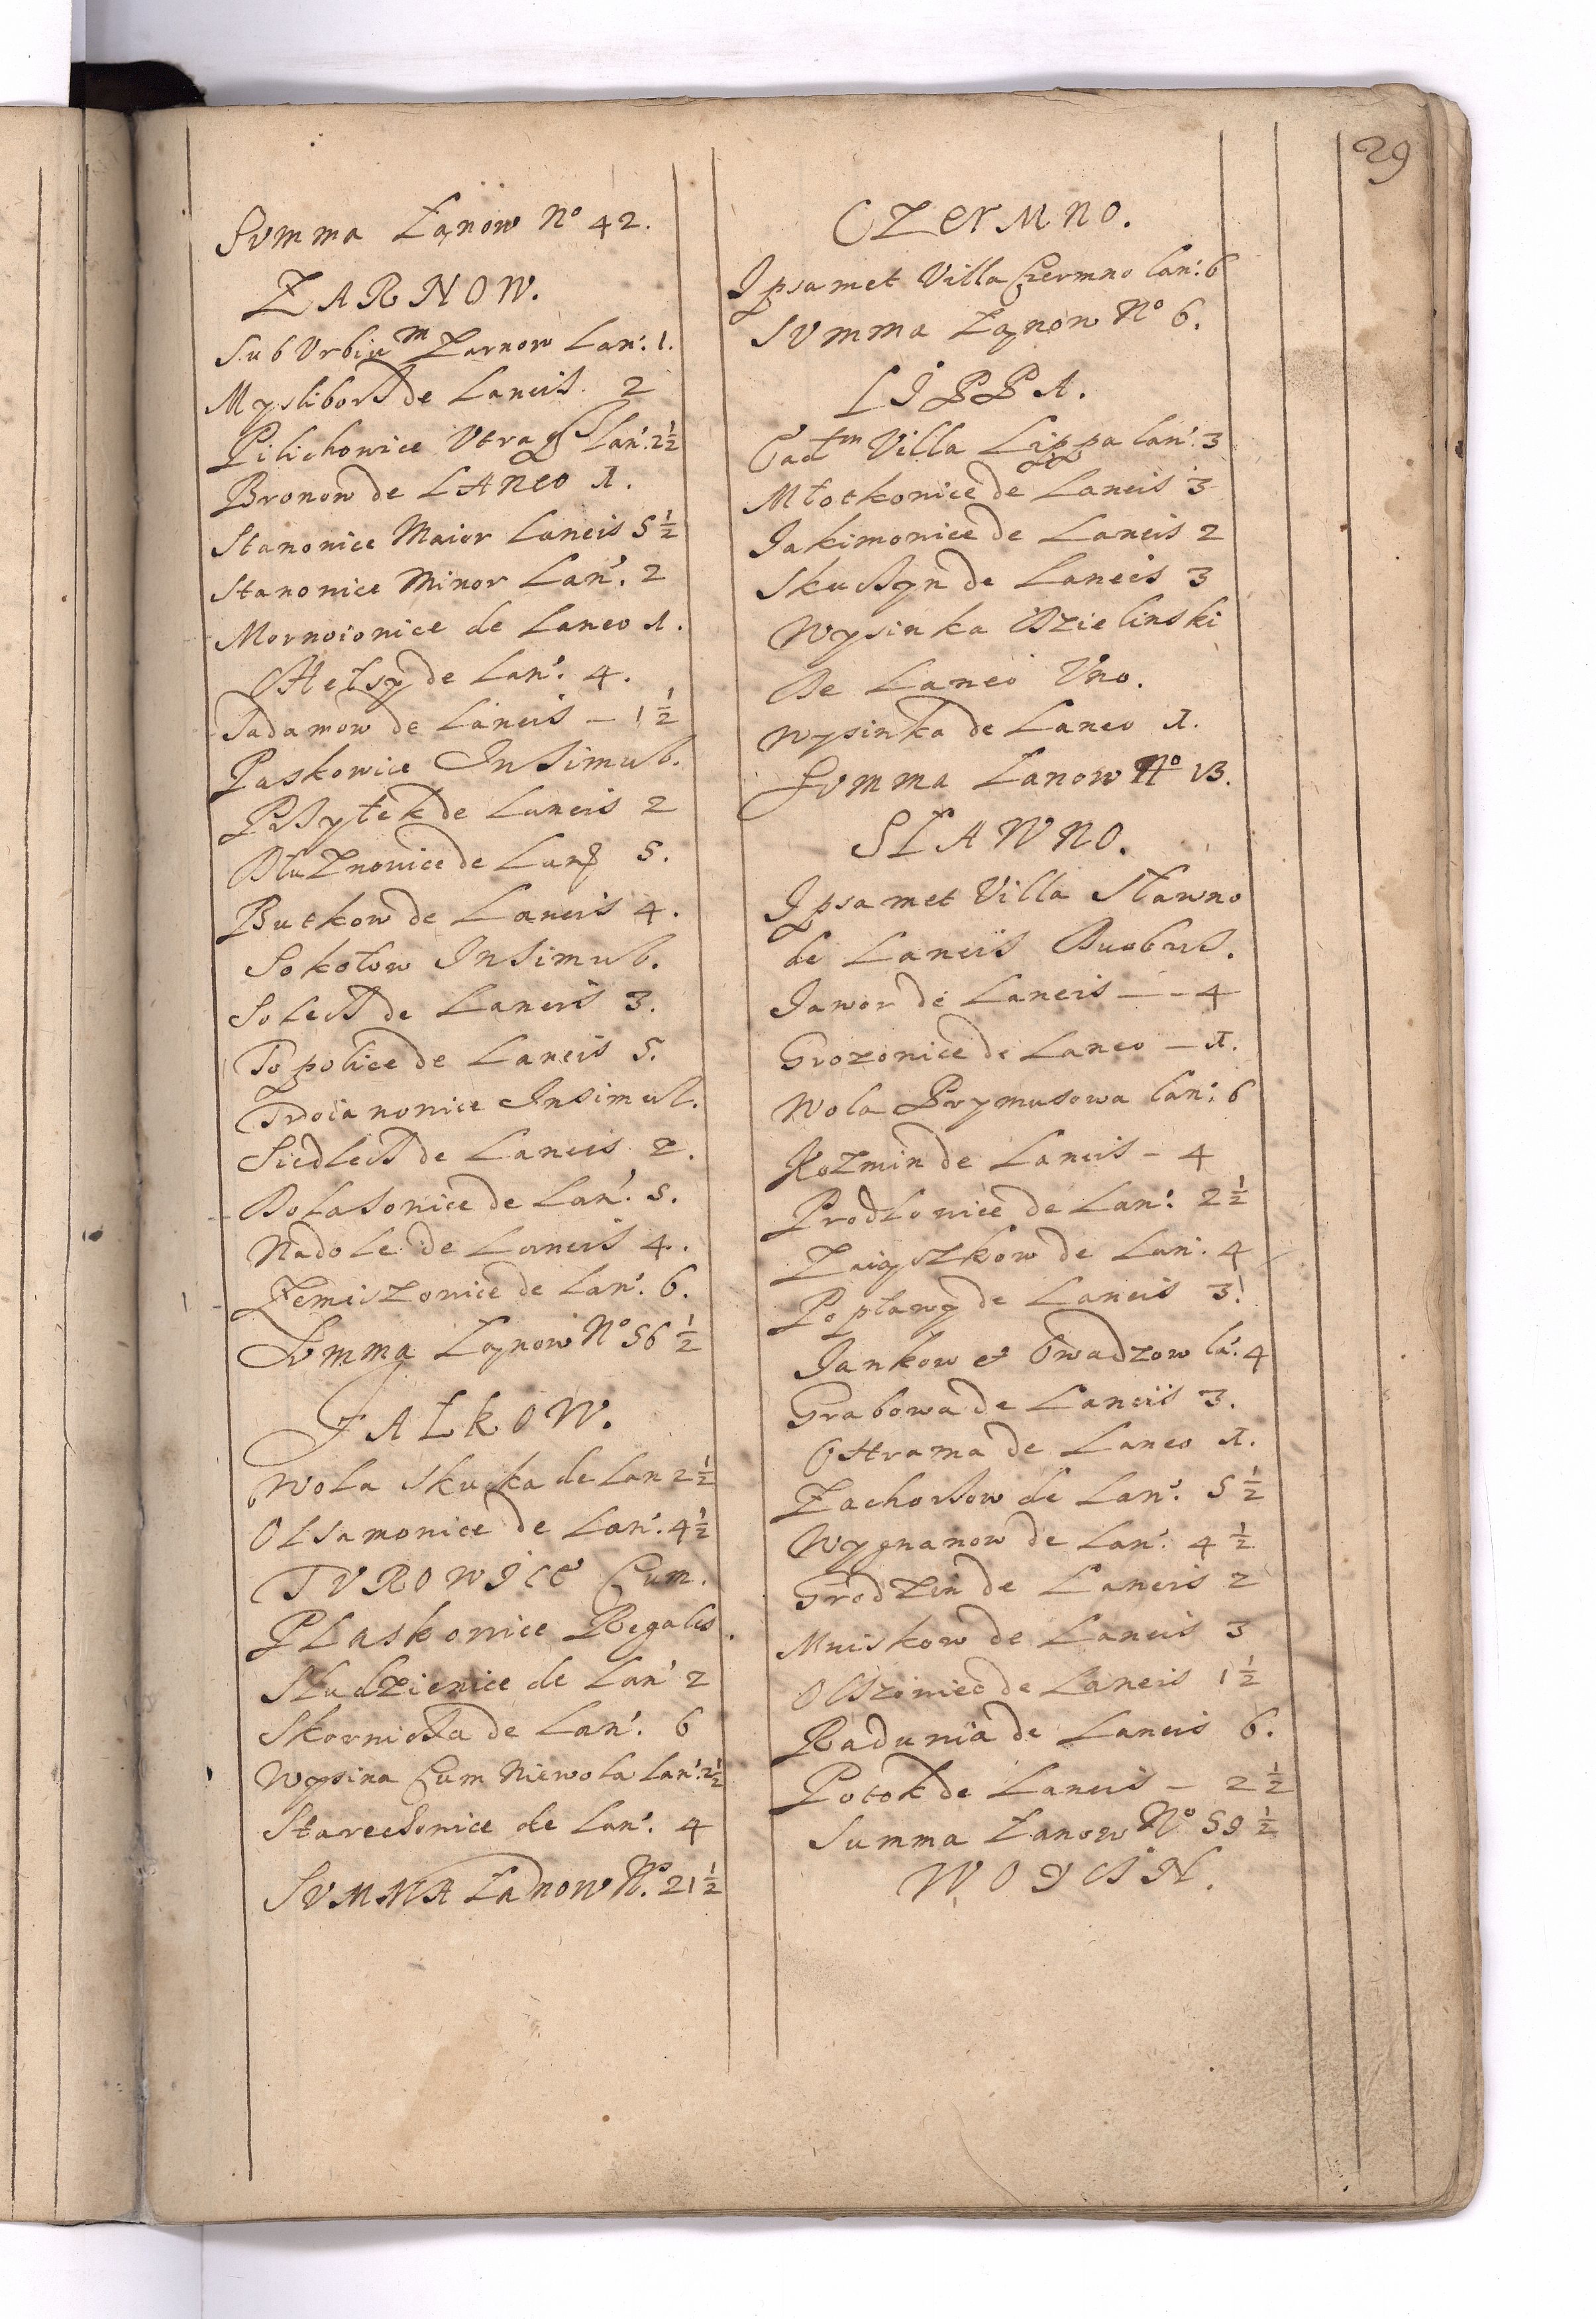 29
Summa Łanow No 42.
ZARNOW.
Sub Vrbiũm Zarnow Lan: 1.
Mysliborß de Laneis 2
Pilichowice Vtraq Lan: 2½
Bronow de LAneo 1.
Stanowice Maior Laneis 5½
Stanowice Minor Lan: 2
Mornoiowice de Laneo 1.
de Lan: 4.
Tadamow de Laneis – 1½
Paskowice Insimul.
Pßytłek de Laneis 2
DłuZnowice de Lan 5.
Butkow de Laneis 4.
Sokołow Insimul.
Soleß de Laneis 3.
Topolice de Laneis 5.
Troianowice Insimul.
Siedleß de Laneis 2.
Dołasowice de Lan: 5.
Nadole de Laneis 4.
Zemiszowice de Lan: 6.
Summa Łanow No 56½
FALKOW.
Wola Skucka de Lan 2½
Olsamowice de Lan: 4½
TVROWICE Cum.
PLaskowice Regalis.
Studzienice de Lan 2
Skornicßa de Lan: 6
Wysina Cum Niewola Lan: 2½
Starecßowice de Lan: 4
SVMMA Łanow No. 21½
CZerMno.
Ipsamet Villa Czermno Lan: 6
SVmma Łanow No 6.
LIPPA.
Eadtm Villa Lippa Lan: 3
Młotkowice de Laneis 3
Iakimowice de Laneis 2
Skußyn de Laneis 3
Wysinka Dzielinski
De Laneo Vno.
Wysinka de Laneo 1.
Summa Łanow No 13.
SŁAWNO.
Ipsamet Villa Sławno
de Laneis Duobus.
Iawor de Laneis – – 4
Grozowice de Laneo – 1.
Wola Prymusowa Lan: 6
Kozmin de Laneis – 4
Prodlowice de Lan: 2½
Zaiyszkow de Lan: 4
Popławy de Laneis 3.
Iankow et Owadzow La: 4
Grabowa de Laneis 3.
Ostrama de Laneo 1.
Zachorßow de Lan: 5½
Wygnanow de Lan: 4½
Grodzin de Laneis 2
Mniskow de Laneis 3
Olßowiec de Laneis 1½
Radunia de Laneis 6.
Potok de Laneis – 2½
Summa Łanow No 59½
WOYCIN.